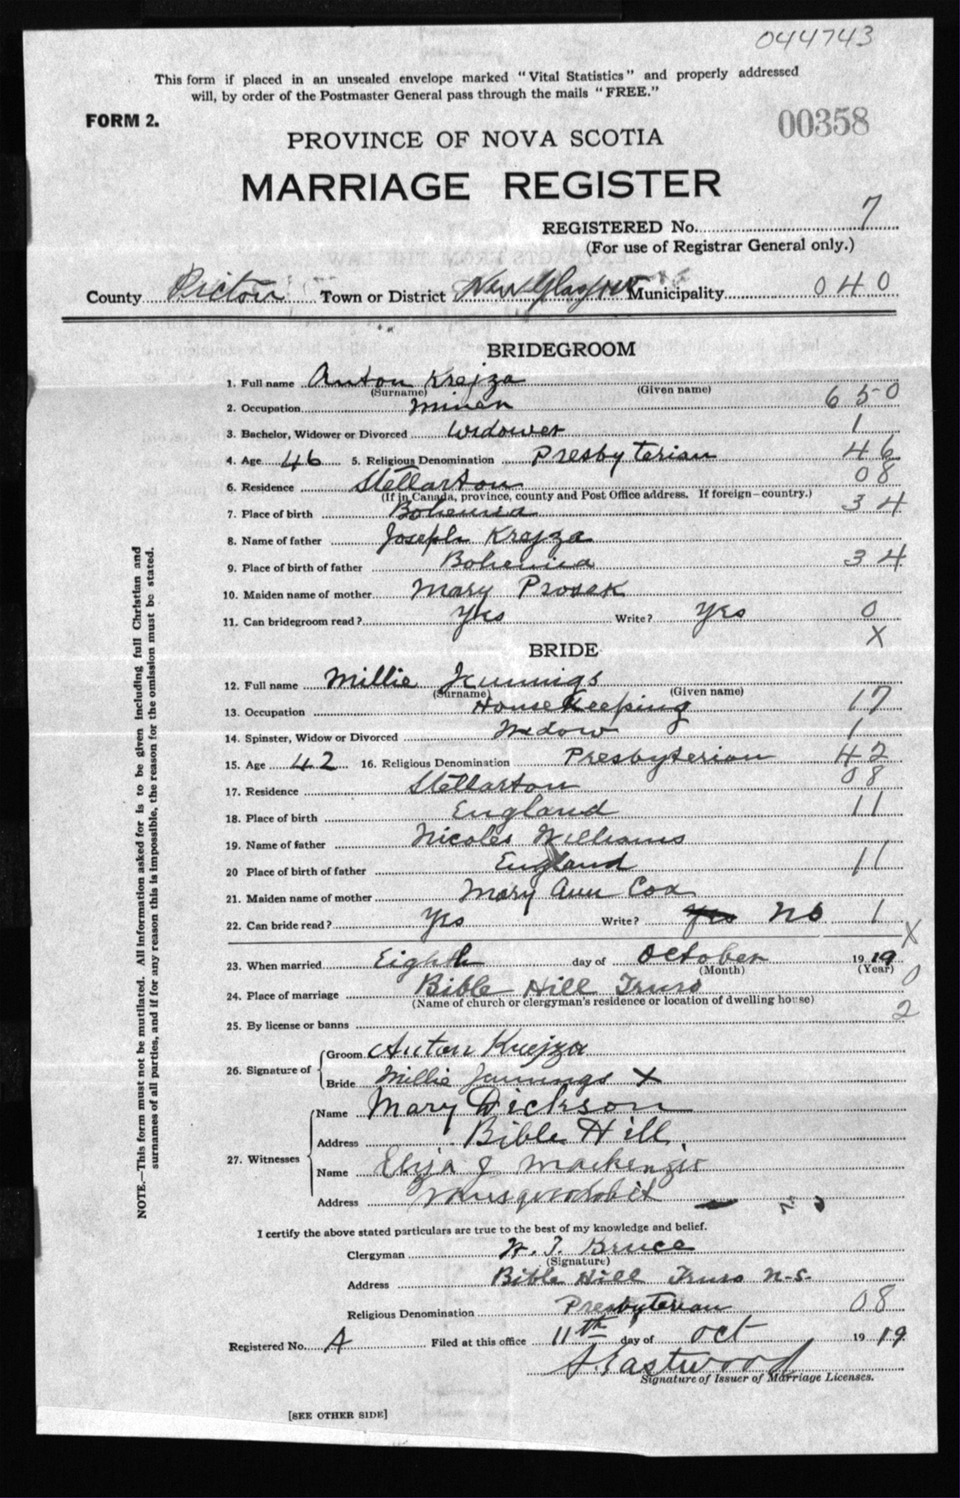 044743
This form if placed in an unsealed envelope marked "Vital Statistics" and properly addressed
will, by order of the Postmaster General pass through the mails "FREE."
FORM 2.
00358
PROVINCE OF NOVA SCOTIA
MARRIAGE REGISTER
REGISTERED No. 7
(For use of Registrar General only.)
County Pictou Town or District New Glasgow Municipality 040
BRIDEGROOM
1. Full name Anton Krejza
(Surname) (Given name)
2. Occupation Miner 650
3. Bachelor, Widower or Divorced Widower 1
4. Age 46 5. Religious Denomination Presbyterian 46
6. Residence Stellarton 08
(If in Canada, province, county and Post Office address. If foreign-country.)
7. Place of birth Bohemia 34
8. Name of father Joseph Krejza
9. Place of birth of father Bohemia 34
10. Maiden name of mother Mary Prosek
11. Can bridegroom read? Yes Write? Yes 0
X
BRIDE
12. Full name Millie Jennings
(Surname) (Given name)
13. Occupation House Keeping 17
14. Spinster, Widow or Divorced Widow 1
15. Age 42 16. Religious Denomination Presbyterian 42
17. Residence Stellarton 08
18. Place of birth England 11
19. Name of father Nicoles Williams
20 Place of birth of father England 11
21. Maiden name of mother Mary Ann Cox
22. Can bride read? Yes Write? Yes No 1
X
23. When married Eighth day of October 1919
(Month) (Year)
24. Place of marriage Bible Hill Truro 0
(Name of church or clergyman's residence or location of dwelling house)
2
25. By license or banns
26. Signature of
Groom Anton Krejza
Bride Millie Jennings X
27. Witnesses
Name Mary Dickson
Address Bible Hill.
Name Eliza J Mackenzie
Address Musquodoboit
I certify the above stated particulars are true to the best of my knowledge and belief.
Clergyman W. T. Bruce
(Signature)
Address Bible Hill Truro N.S.
Religious Denomination Presbyterian 08
Registered No. A Filed at this office 11th day of Oct 1919
Eastwood
Signature of Issuer of Marriage Licenses.
[SEE OTHER SIDE]
NOTE.—This form must not be mutilated. All information asked for is to be given including full Christian and
surnames of all parties, and if for any reason this is impossible, the reason for the omission must be stated.